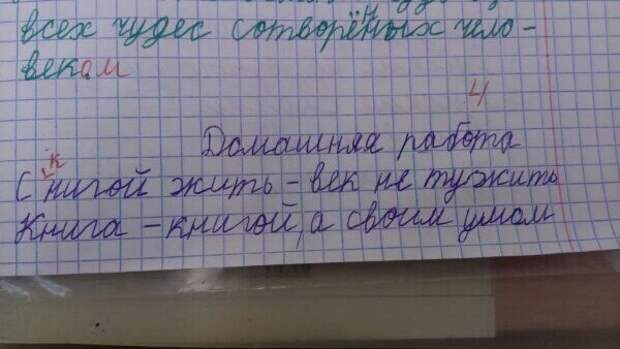 всех чудес сотворённых чело-
векам
4
Домашняя работа
С книгой жить - век не тужить
Книга - книгой, а своим умом